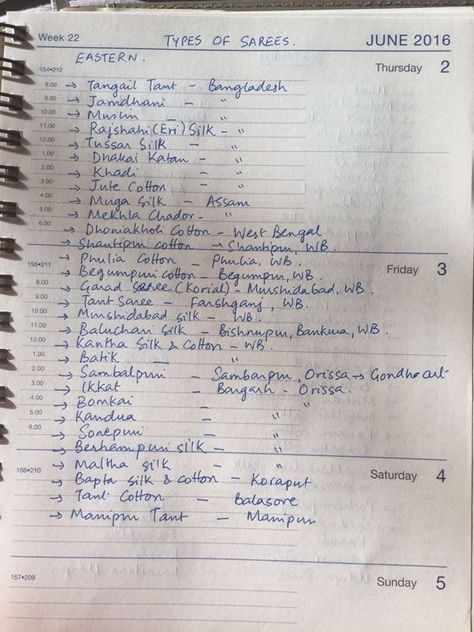 Week 22 TYPES OF SAREES. JUNE 2016
EASTERN. Thursday 2
154•212
8.00 → Tangail Tant - Bangladesh
9.00 → Jamdhani - "
10.00 → Muslin - "
11.00 → Rajshahi (Eri) Silk - "
12.00 → Tussar Silk - "
1.00 → Dhakai Katan - "
2.00 → Khadi - "
3.00 → Jute Cotton - "
4.00 → Muga Silk - Assam
5.00 → Mekhla Chador - "
6.00 → Dhoniakholi Cotton - West Bengal
→ Shantipuri cotton → Shantipur, WB.
→ Phulia Cotton - Phulia, WB.
155•211 → Begumpuri cotton - Begumpur, WB. Friday 3
8.00 → Garad saree (Korial) - Murshidabad, WB.
9.00 → Tant Saree - Farshganj, WB.
10.00 → Murshidabad silk - WB.
11.00 → Baluchari Silk - Bishnupur, Bankura, WB.
12.00 → Kantha Silk & Cotton - WB.
1.00 → Batik - "
2.00 → Sambalpuri - Sambarpur, Orissa → Gondho art
3.00 → Ikkat - Bargarh - Orissa.
4.00 → Bomkai - "
5.00 → Kandua - "
6.00 → Sonepuri - "
→ Berhampuri silk - "
156•210 → Maltha silk - " Saturday 4
→ Bapta silk & cotton - Koraput
→ Tant Cotton - Balasore
→ Manipur Tant - Manipur
157•209 Sunday 5